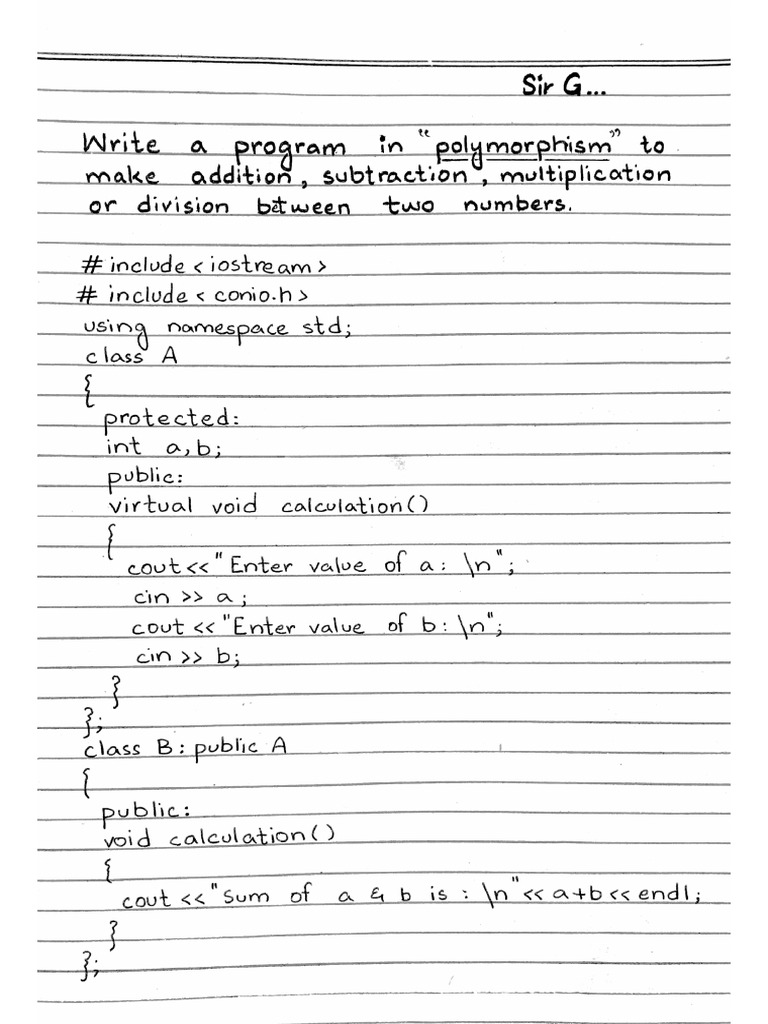 Sir G...
Write a program in "polymorphism" to
make addition, subtraction, multiplication
or division between two numbers.
# include < iostream >
# include < conio.h >
using namespace std;
class A
{
protected:
int a,b;
public:
virtual void calculation()
{
cout<<"Enter value of a: \n";
cin >> a;
cout <<"Enter value of b:\n";
cin >> b;
}
};
class B: public A
{
public:
void calculation()
{
cout <<"Sum of a & b is : \n"<< a+b<< endl;
}
};